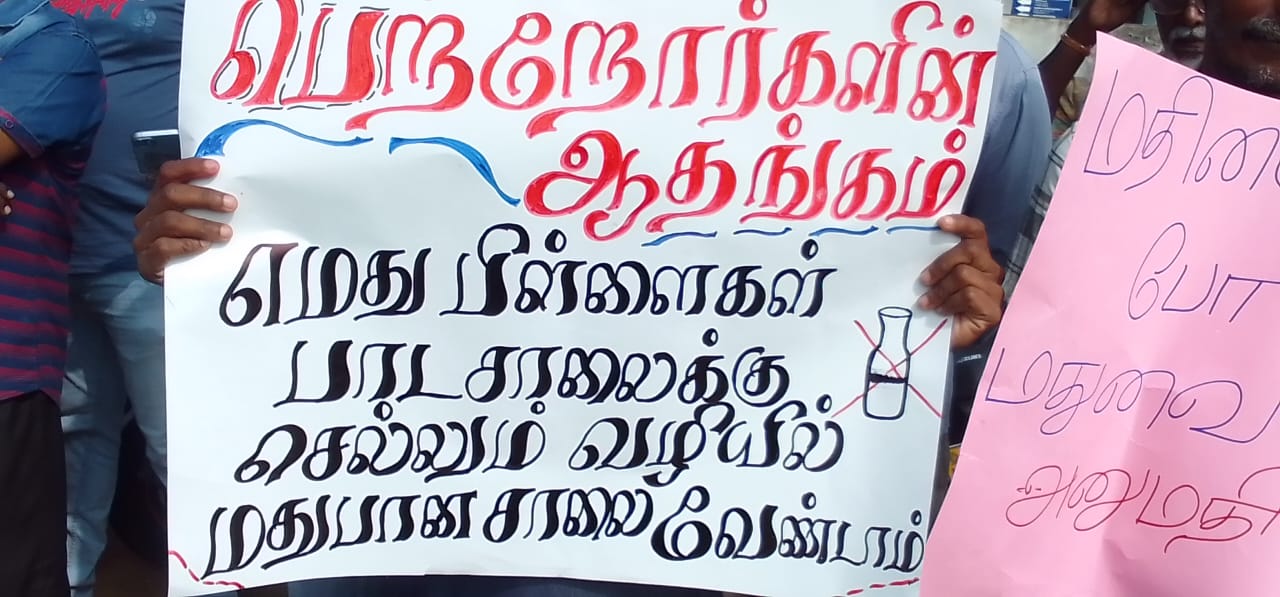 பெற்றோர்களின்
ஆதங்கம்
எமது பிள்ளைகள்
பாடசாலைக்கு
செல்லும் வழியில்
மதுபான சாலை வேண்டாம்
போ
மதுவை
அனுமதி